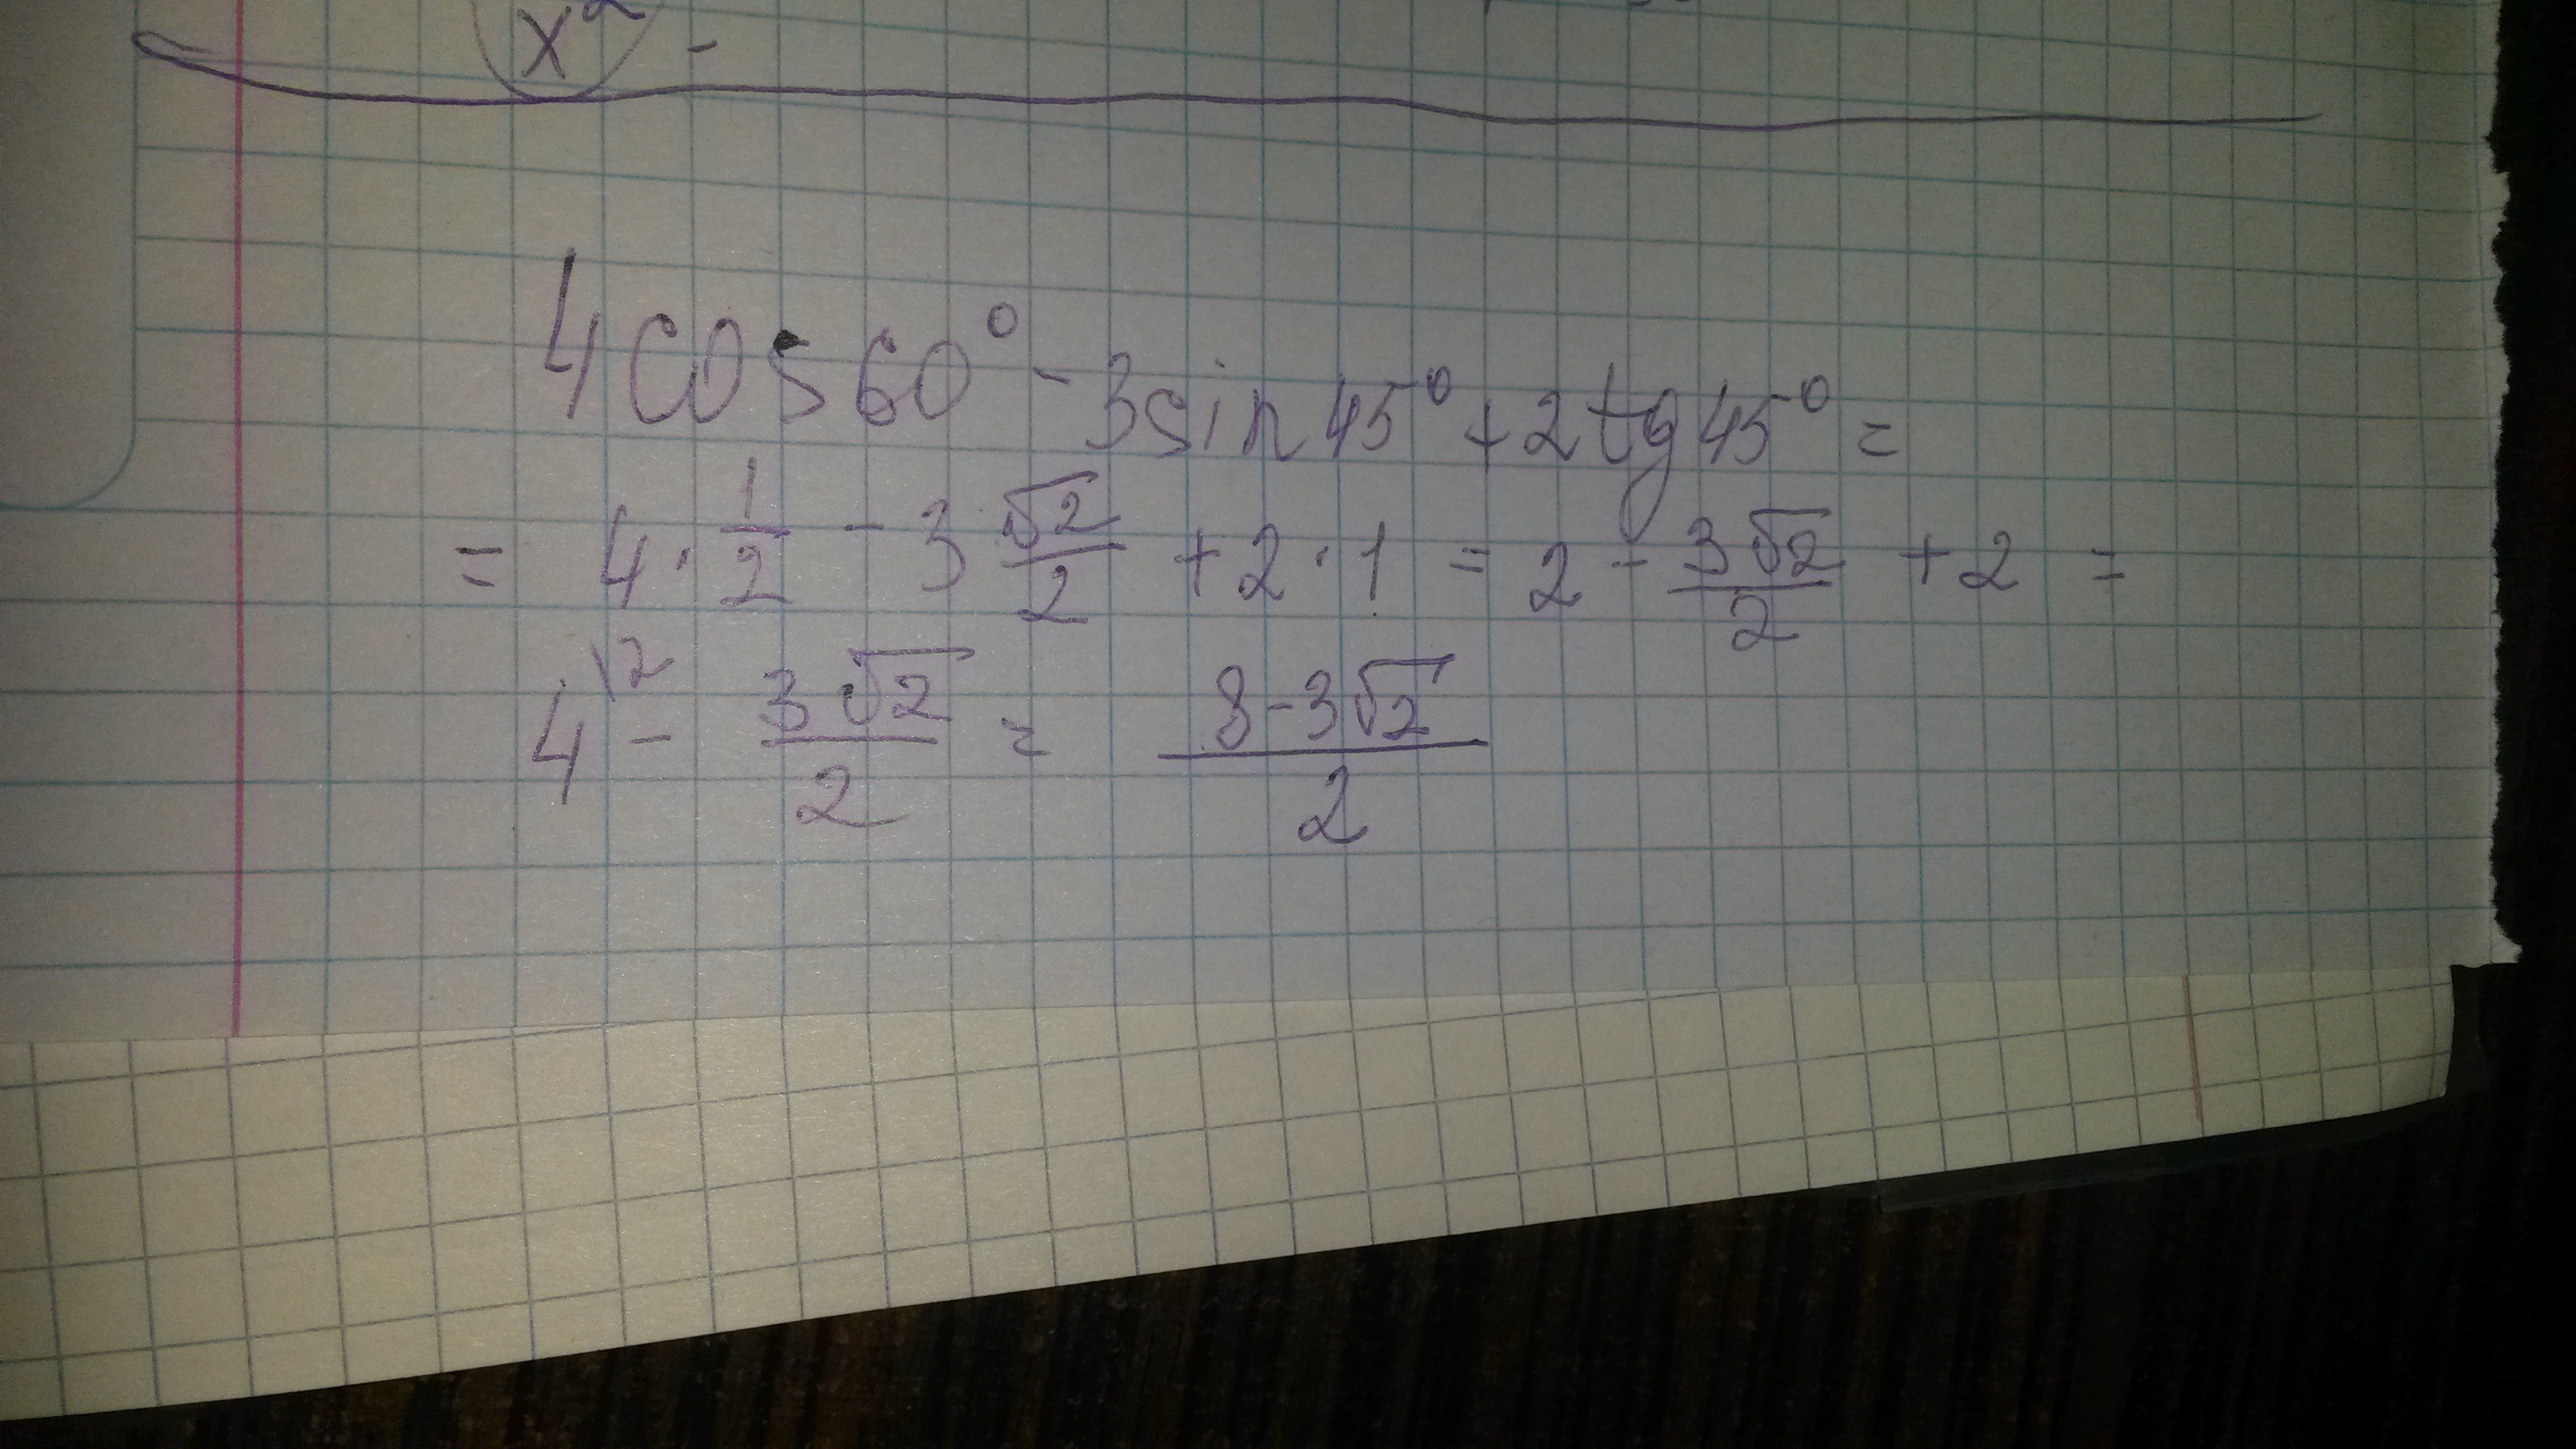 x² -
4cos60° - 3sin45° + 2tg45° =
= 4 · 1/2 - 3 √2/2 + 2 · 1 = 2 - 3√2/2 + 2 =
4\2 - 3√2/2 = 8-3√2/2